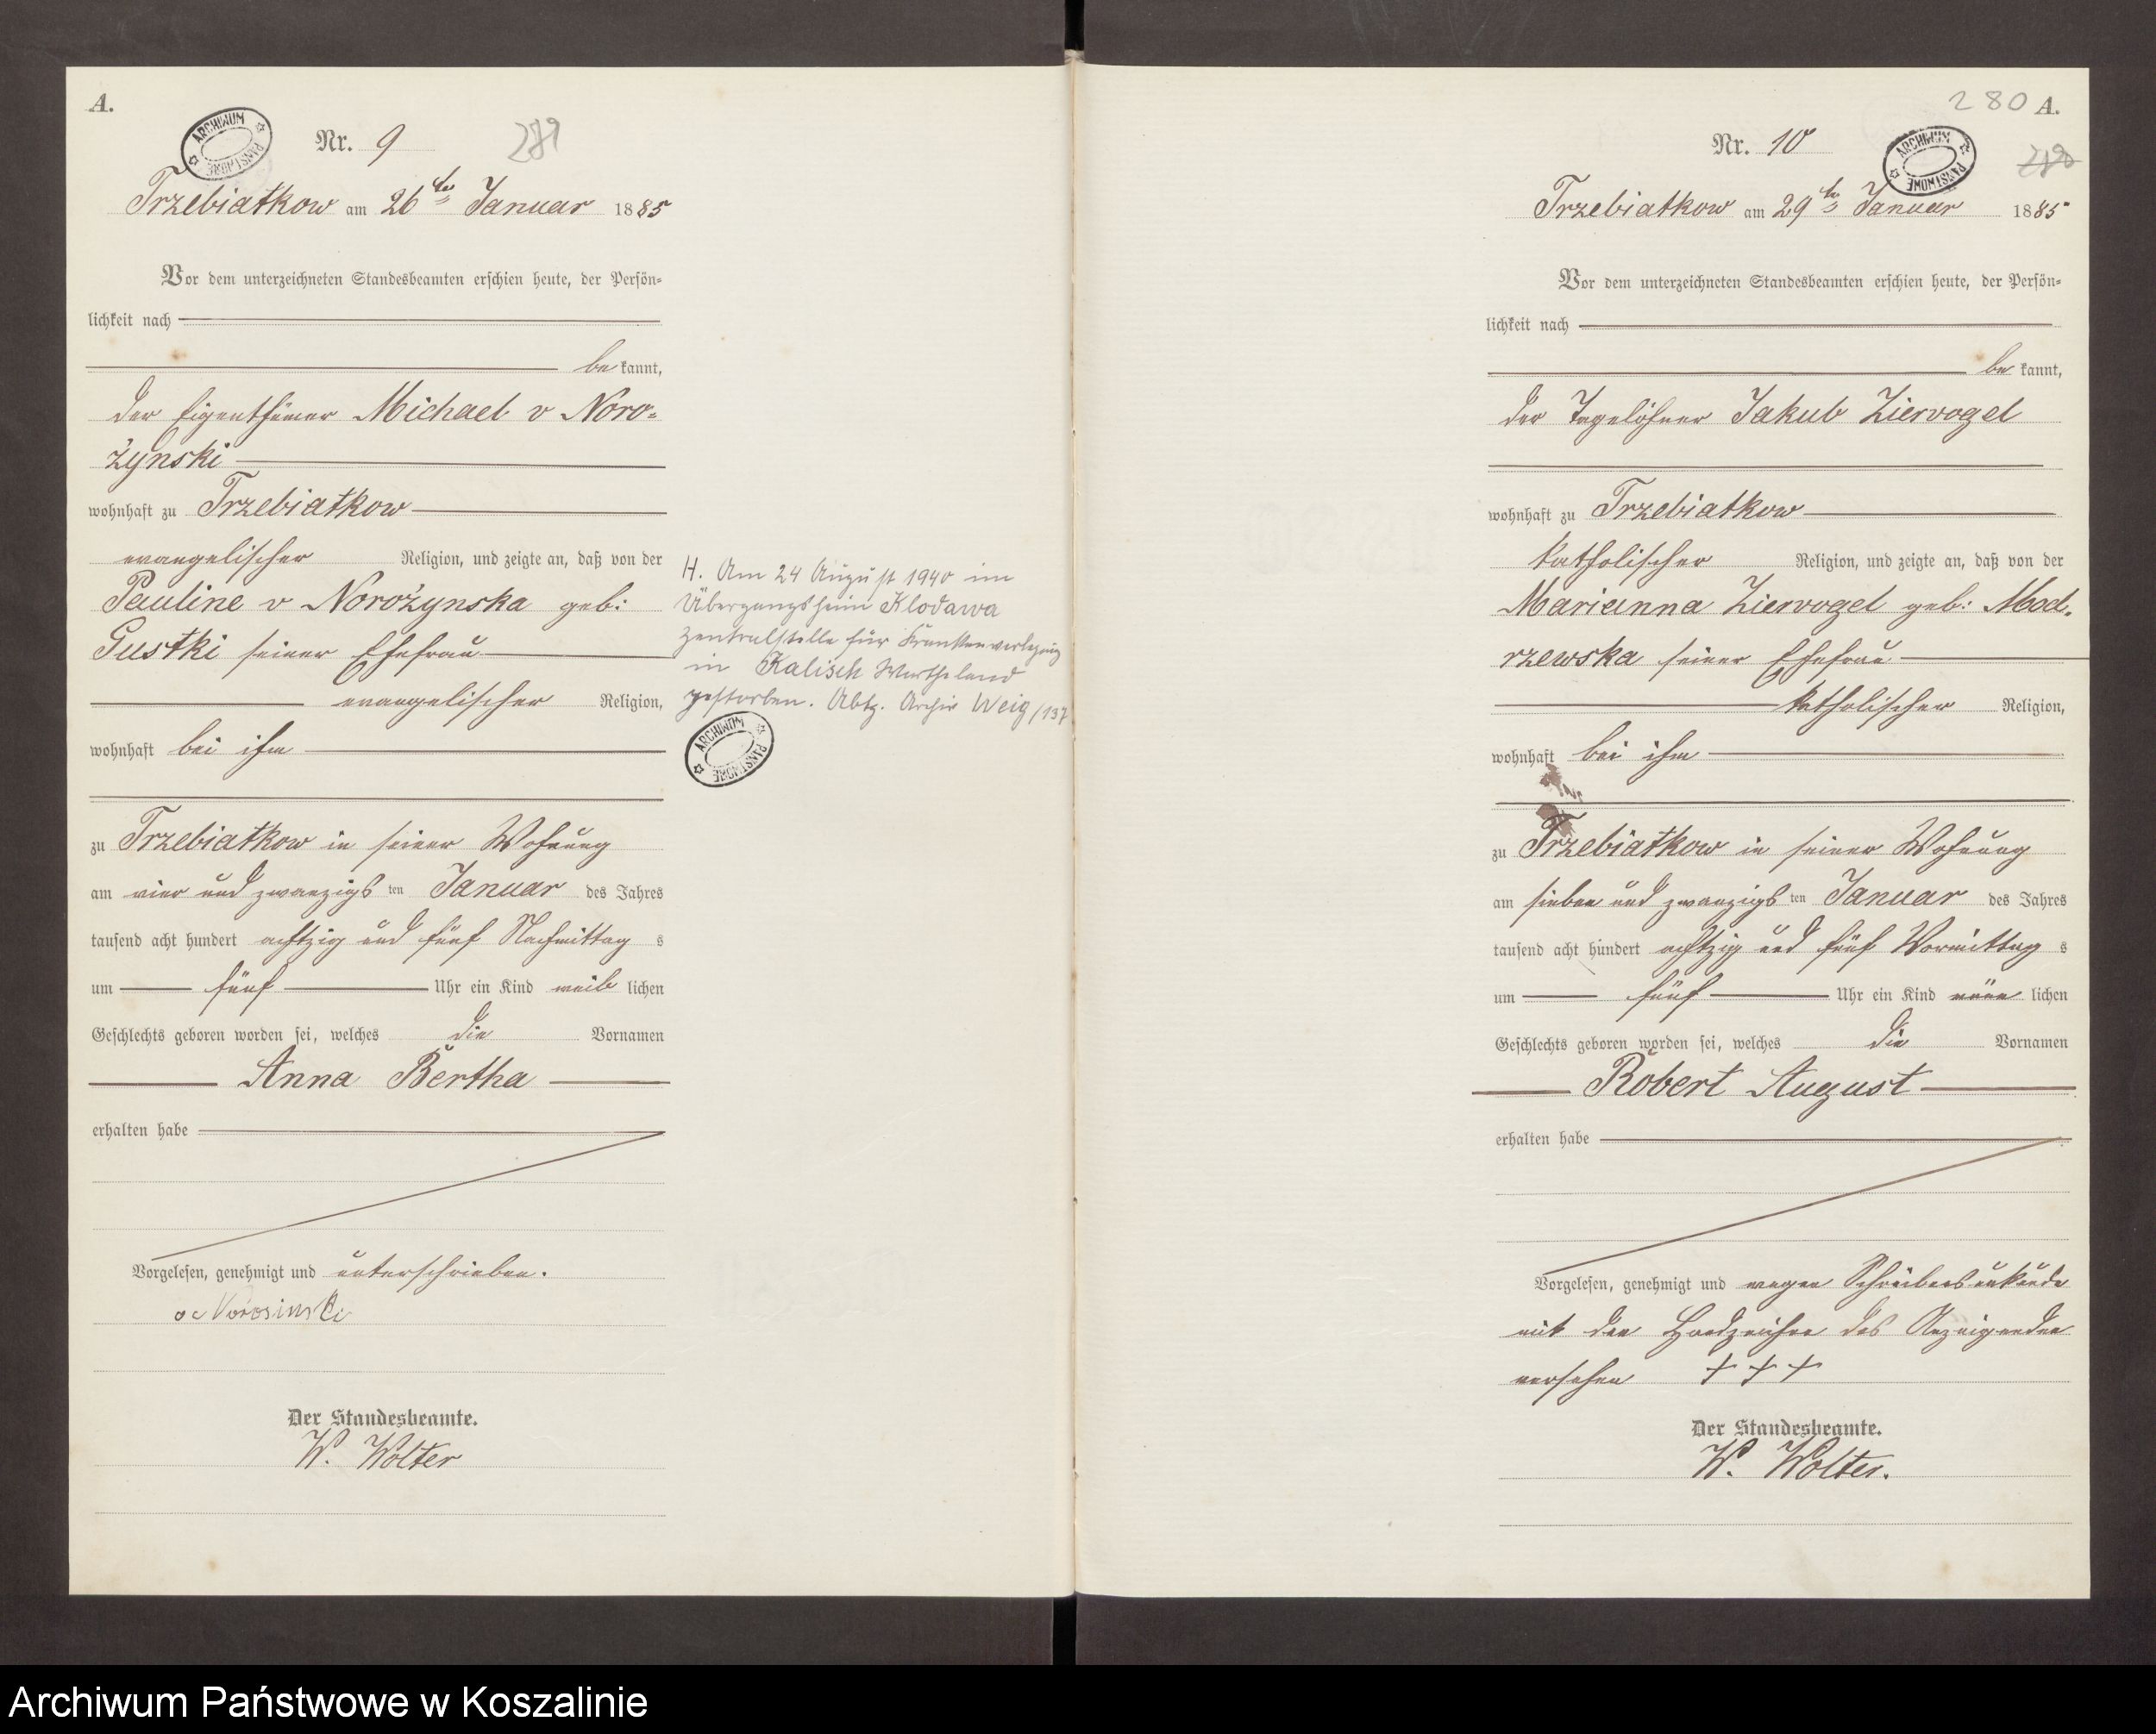 A.
ARCHIWUM PAŃSTWOWE
Nr. 9
Trzebiatkow am 26ten Januar 1885
Vor dem unterzeichneten Standesbeamten erschien heute, der Persön=
lichkeit nach
be kannt,
der Eigenthümer Michael v Noro=
żynski
wohnhaft zu Trzebiatkow
evangelischer Religion, und zeigte an, daß von der
Pauline v Norożynska geb:
Gustki seiner Ehefrau
evangelischer Religion,
wohnhaft bei ihm
zu Trzebiatkow in seiner Wohnung
am vier und zwanzigs ten Januar des Jahres
tausend acht hundert achtzig und fünf Nachmittag s
um fünf Uhr ein Kind weib lichen
Geschlechts geboren worden sei, welches die Vornamen
Anna Bertha
erhalten habe
Vorgelesen, genehmigt und unterschrieben.
Der Standesbeamte.
W. Wolter
H. Am 24 August 1940 im
Übergangsheim Klodawa
Zentralstelle für Krankenverlegung
in Kalisch Wartheland
gestorben. Abtg. Archiv Weig/137
ARCHIWUM PAŃSTWOWE
280 A.
Nr. 10
ARCHIWUM PAŃSTWOWE
Trzebiatkow am 29ten Januar 1885
Vor dem unterzeichneten Standesbeamten erschien heute, der Persön=
lichkeit nach
be kannt,
der Tagelöhner Jakub Ziervogel
wohnhaft zu Trzebiatkow
katholischer Religion, und zeigte an, daß von der
Marianna Ziervogel geb: Mod=
rzewska seiner Ehefrau
katholischer Religion,
wohnhaft bei ihm
zu Trzebiatkow in seiner Wohnung
am sieben und zwanzigs ten Januar des Jahres
tausend acht hundert achtzig und fünf Vormittag s
um fünf Uhr ein Kind män lichen
Geschlechts geboren worden sei, welches die Vornamen
Robert August
erhalten habe
Vorgelesen, genehmigt und wegen Schreibensunkunde
mit den Handzeichen des Anzeigenden
versehen + + +
Der Standesbeamte.
W. Wolter.
Archiwum Państwowe w Koszalinie